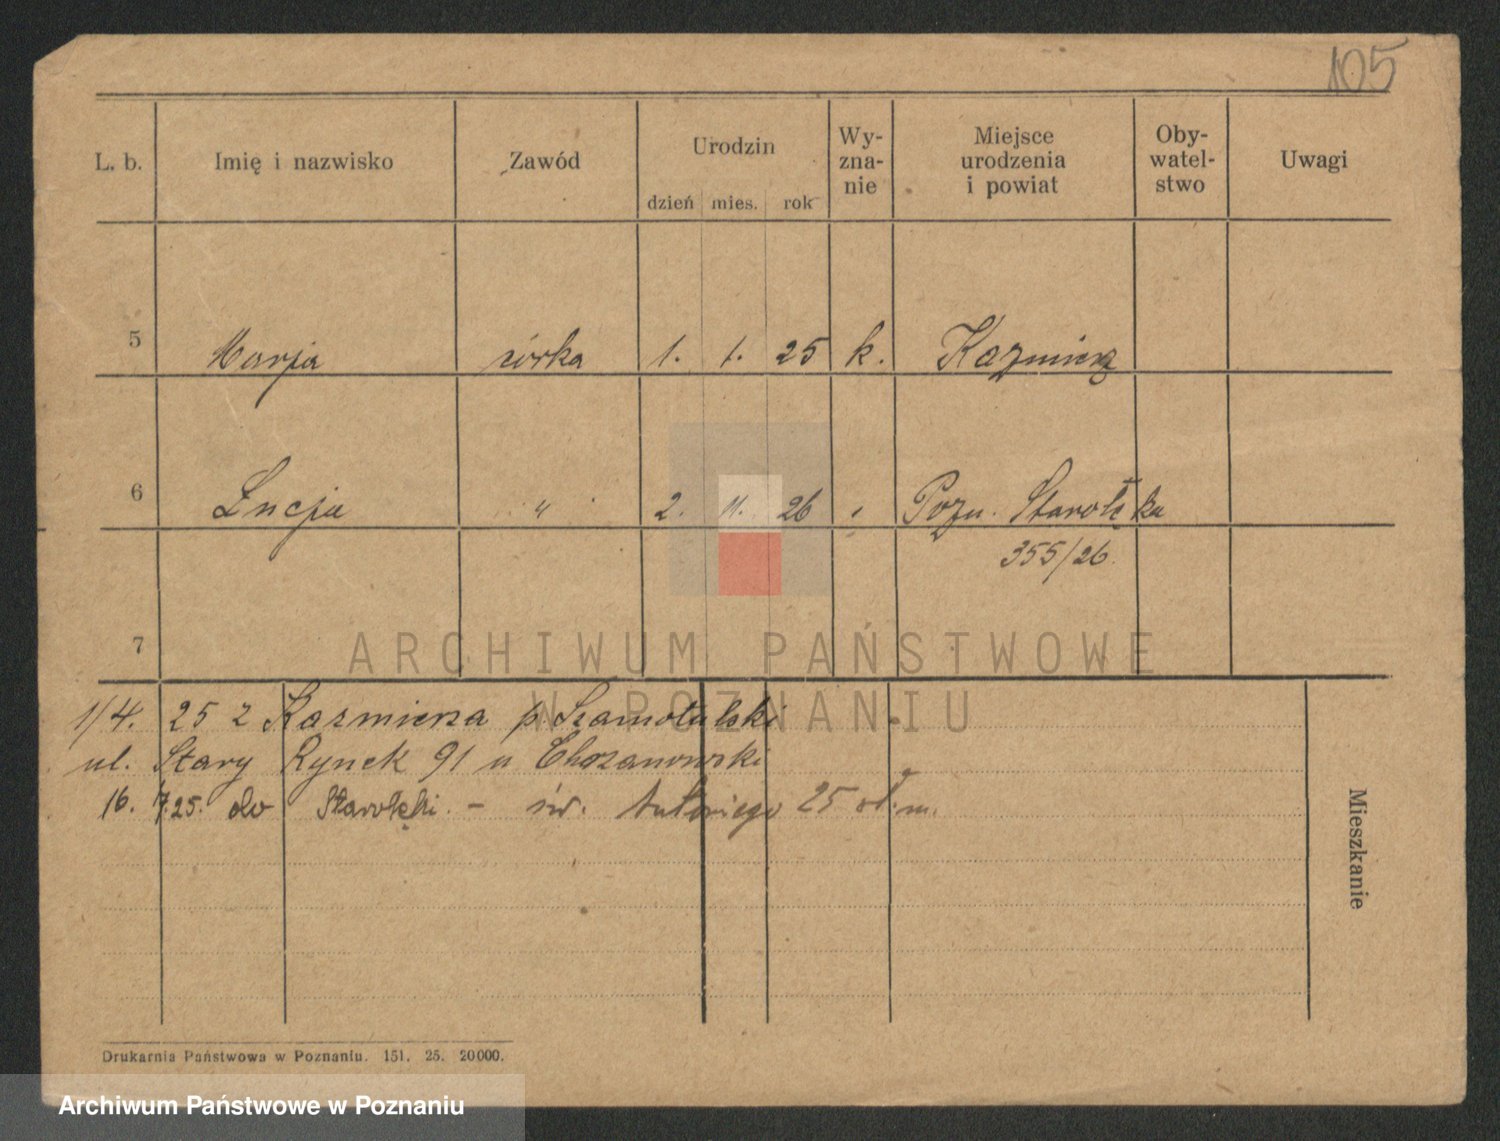 105
L. b. Imię i nazwisko Zawód Urodzin Wy-zna-nie Miejsce urodzenia i powiat Oby-watel-stwo Uwagi
dzień mies. rok
5 Marja córka 1. 1. 25 k. Kazmierz
6 Lucja " 2. 11. 26 Pozn. Starołęka
355/26.
7
ARCHIWUM PAŃSTWOWE
W POZNANIU
1/4. 25 z Kazmierza p. Szamotulski
ul. Stary Rynek 91 u
16. 7 25. do Starołęki - św. 25 
Mieszkanie
Drukarnia Państwowa w Poznaniu. 151. 25. 20000.
Archiwum Państwowe w Poznaniu